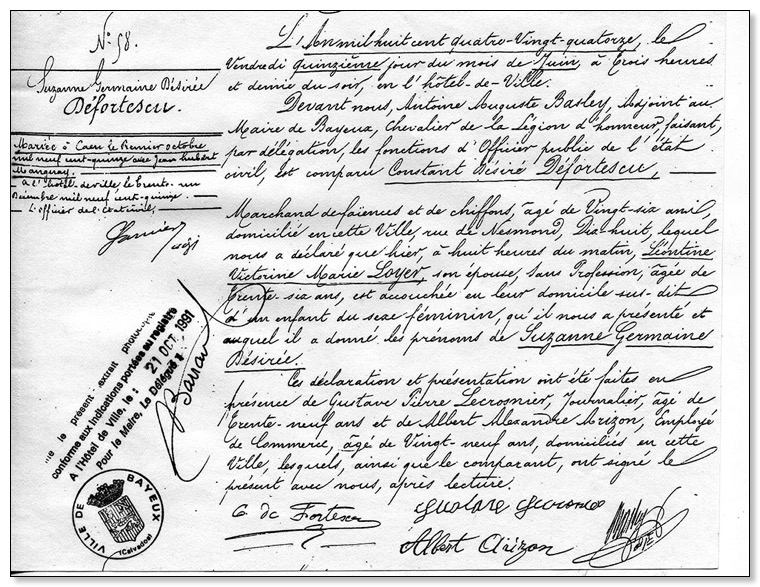 N° 58.
Suzanne Germaine Désirée
Défortescu.
Mariée à Caen le Premier octobre
mil neuf cent-quinze avec Jean Hubert
Manguay.
à l'hôtel-de ville, le Trente-un
Décembre mil neuf cent-quinze.
L'officier de l'état civil,
L'An mil huit cent quatre-Vingt-quatorze, le
Vendredi quinzième jour du mois de Juin, à Trois heures
et demie du soir, en l'hôtel-de-Ville.
Devant nous, Antoine Auguste Basley, Adjoint au
Maire de Bayeux, Chevalier de la Légion d'honneur, faisant,
par délégation, les fonctions d'Officier public de l'état
civil, est comparu Constant Désiré Défortescu,
Marchand de faïences et de chiffons, âgé de Vingt-six ans,
domicilié en cette Ville, rue de Nesmond, Dix-huit, lequel
nous a déclaré que hier, à huit heures du matin, Léontine
Victorine Marie Loyer, son épouse, sans Profession, âgée de
Trente-six ans, est accouchée en leur domicile sus-dit
d'un enfant du sexe féminin, qu'il nous a présenté et
auquel il a donné les prénoms de Suzanne Germaine
Désirée.
Ces déclaration et présentation ont été faites en
présence de Gustave Pierre Lecrosnier, Journalier, âgé de
Trente-neuf ans et de Albert Alexandre Arizon, Employé
de Commerce, âgé de Vingt-neuf ans, domiciliés en cette
Ville, lesquels, ainsi que le comparant, ont signé le
présent avec nous, après lecture.
C. de Fortescu
Gustave
Albert Arizon
le présent extrait photocopié
conforme aux indications portées au registre
A l'Hôtel de Ville, le : 21 OCT. 1991
Pour le Maire, Le Délégué :
VILLE DE BAYEUX
(Calvados)